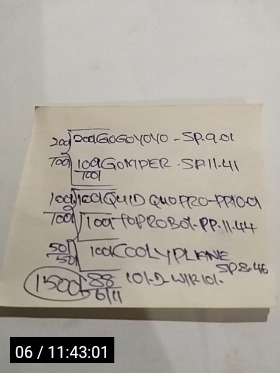 200 200 GOGOYOYO - SP.9.01
100 100 GOMPER - SP.11.41
100
100 100 QUID QUO PRO - PP.10.01
100 100 TOPROBOT - PP.11.44
50 100 COOLY PLANE
50 SP.8.46
1500 88 101.D.W1R101.
6/11
06 / 11:43:01